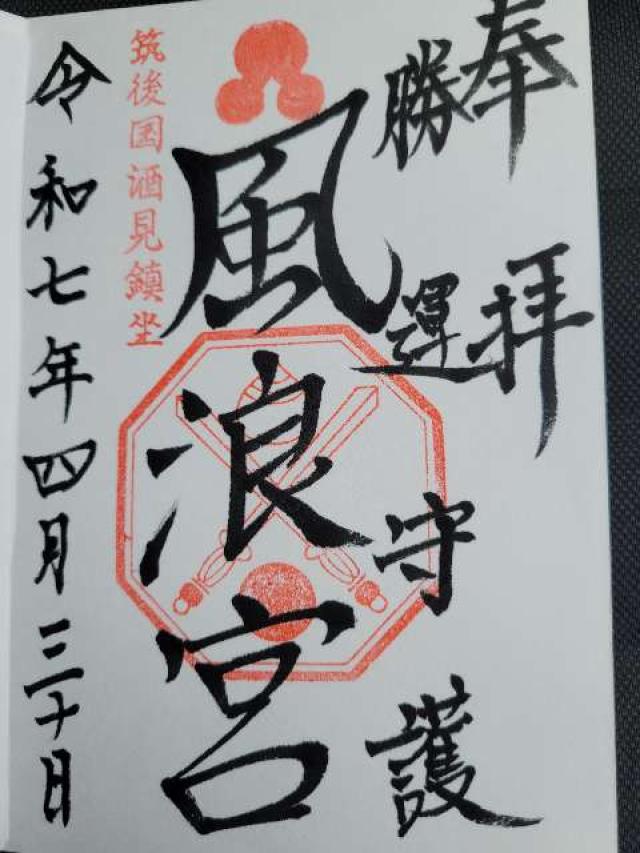 奉拝
勝運守護
風浪宮
筑後国酒見鎮坐
令和七年四月三十日